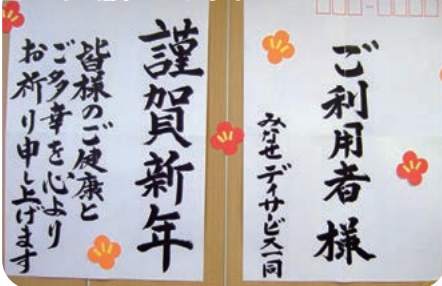 ご利用者様
みなせディサービス一同
謹賀新年
皆様のご健康と
ご多幸を心より
お祈り申し上げます